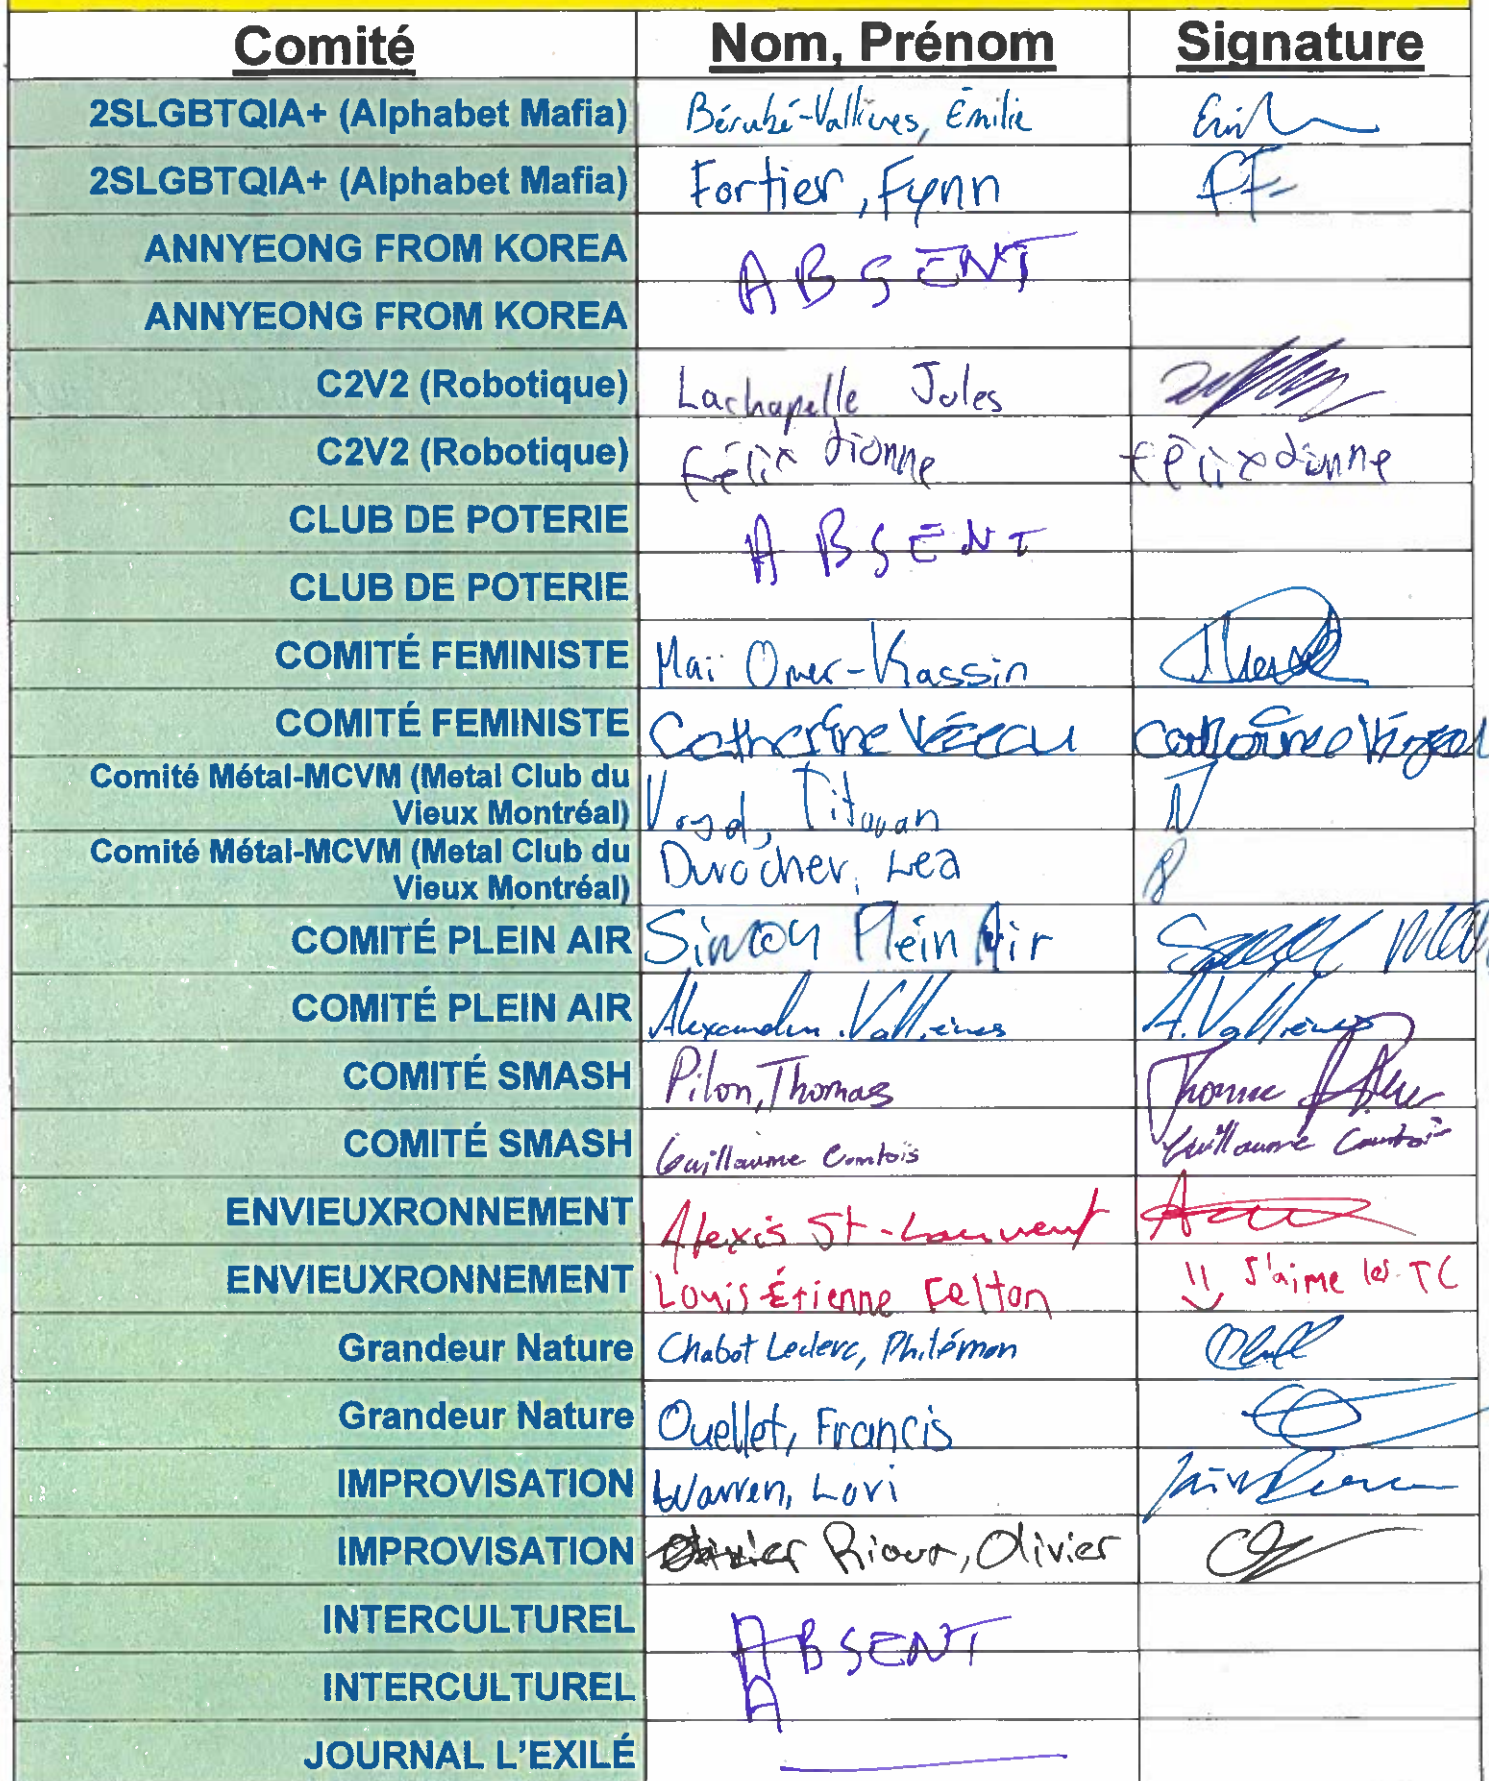 Comité Nom, Prénom Signature
2SLGBTQIA+ (Alphabet Mafia) Bérubé-Vallières, Émilie
2SLGBTQIA+ (Alphabet Mafia) Fortier, Fynn FF
ANNYEONG FROM KOREA ABSENT
ANNYEONG FROM KOREA
C2V2 (Robotique) Lachapelle Jules
C2V2 (Robotique) Félix dionne Félix dionne
CLUB DE POTERIE ABSENT
CLUB DE POTERIE
COMITÉ FEMINISTE Maï Omer-Kassin
COMITÉ FEMINISTE Catherine
Comité Métal-MCVM (Metal Club du
Vieux Montréal) Titouan
Comité Métal-MCVM (Metal Club du
Vieux Montréal) Durocher, Lea
COMITÉ PLEIN AIR Plein Air
COMITÉ PLEIN AIR Vallières A. Vallières
COMITÉ SMASH Pilon, Thomas
COMITÉ SMASH Guillaume Comtois Guillaume Comtois
ENVIEUXRONNEMENT Alexis St-Laurent
ENVIEUXRONNEMENT Louis-Étienne Felton J'aime les TC
Grandeur Nature Chabot Leclerc, Philémon
Grandeur Nature Ouellet, Francis
IMPROVISATION Warren, Lori
IMPROVISATION Rioux, Olivier
INTERCULTUREL ABSENT
INTERCULTUREL A
JOURNAL L'EXILÉ